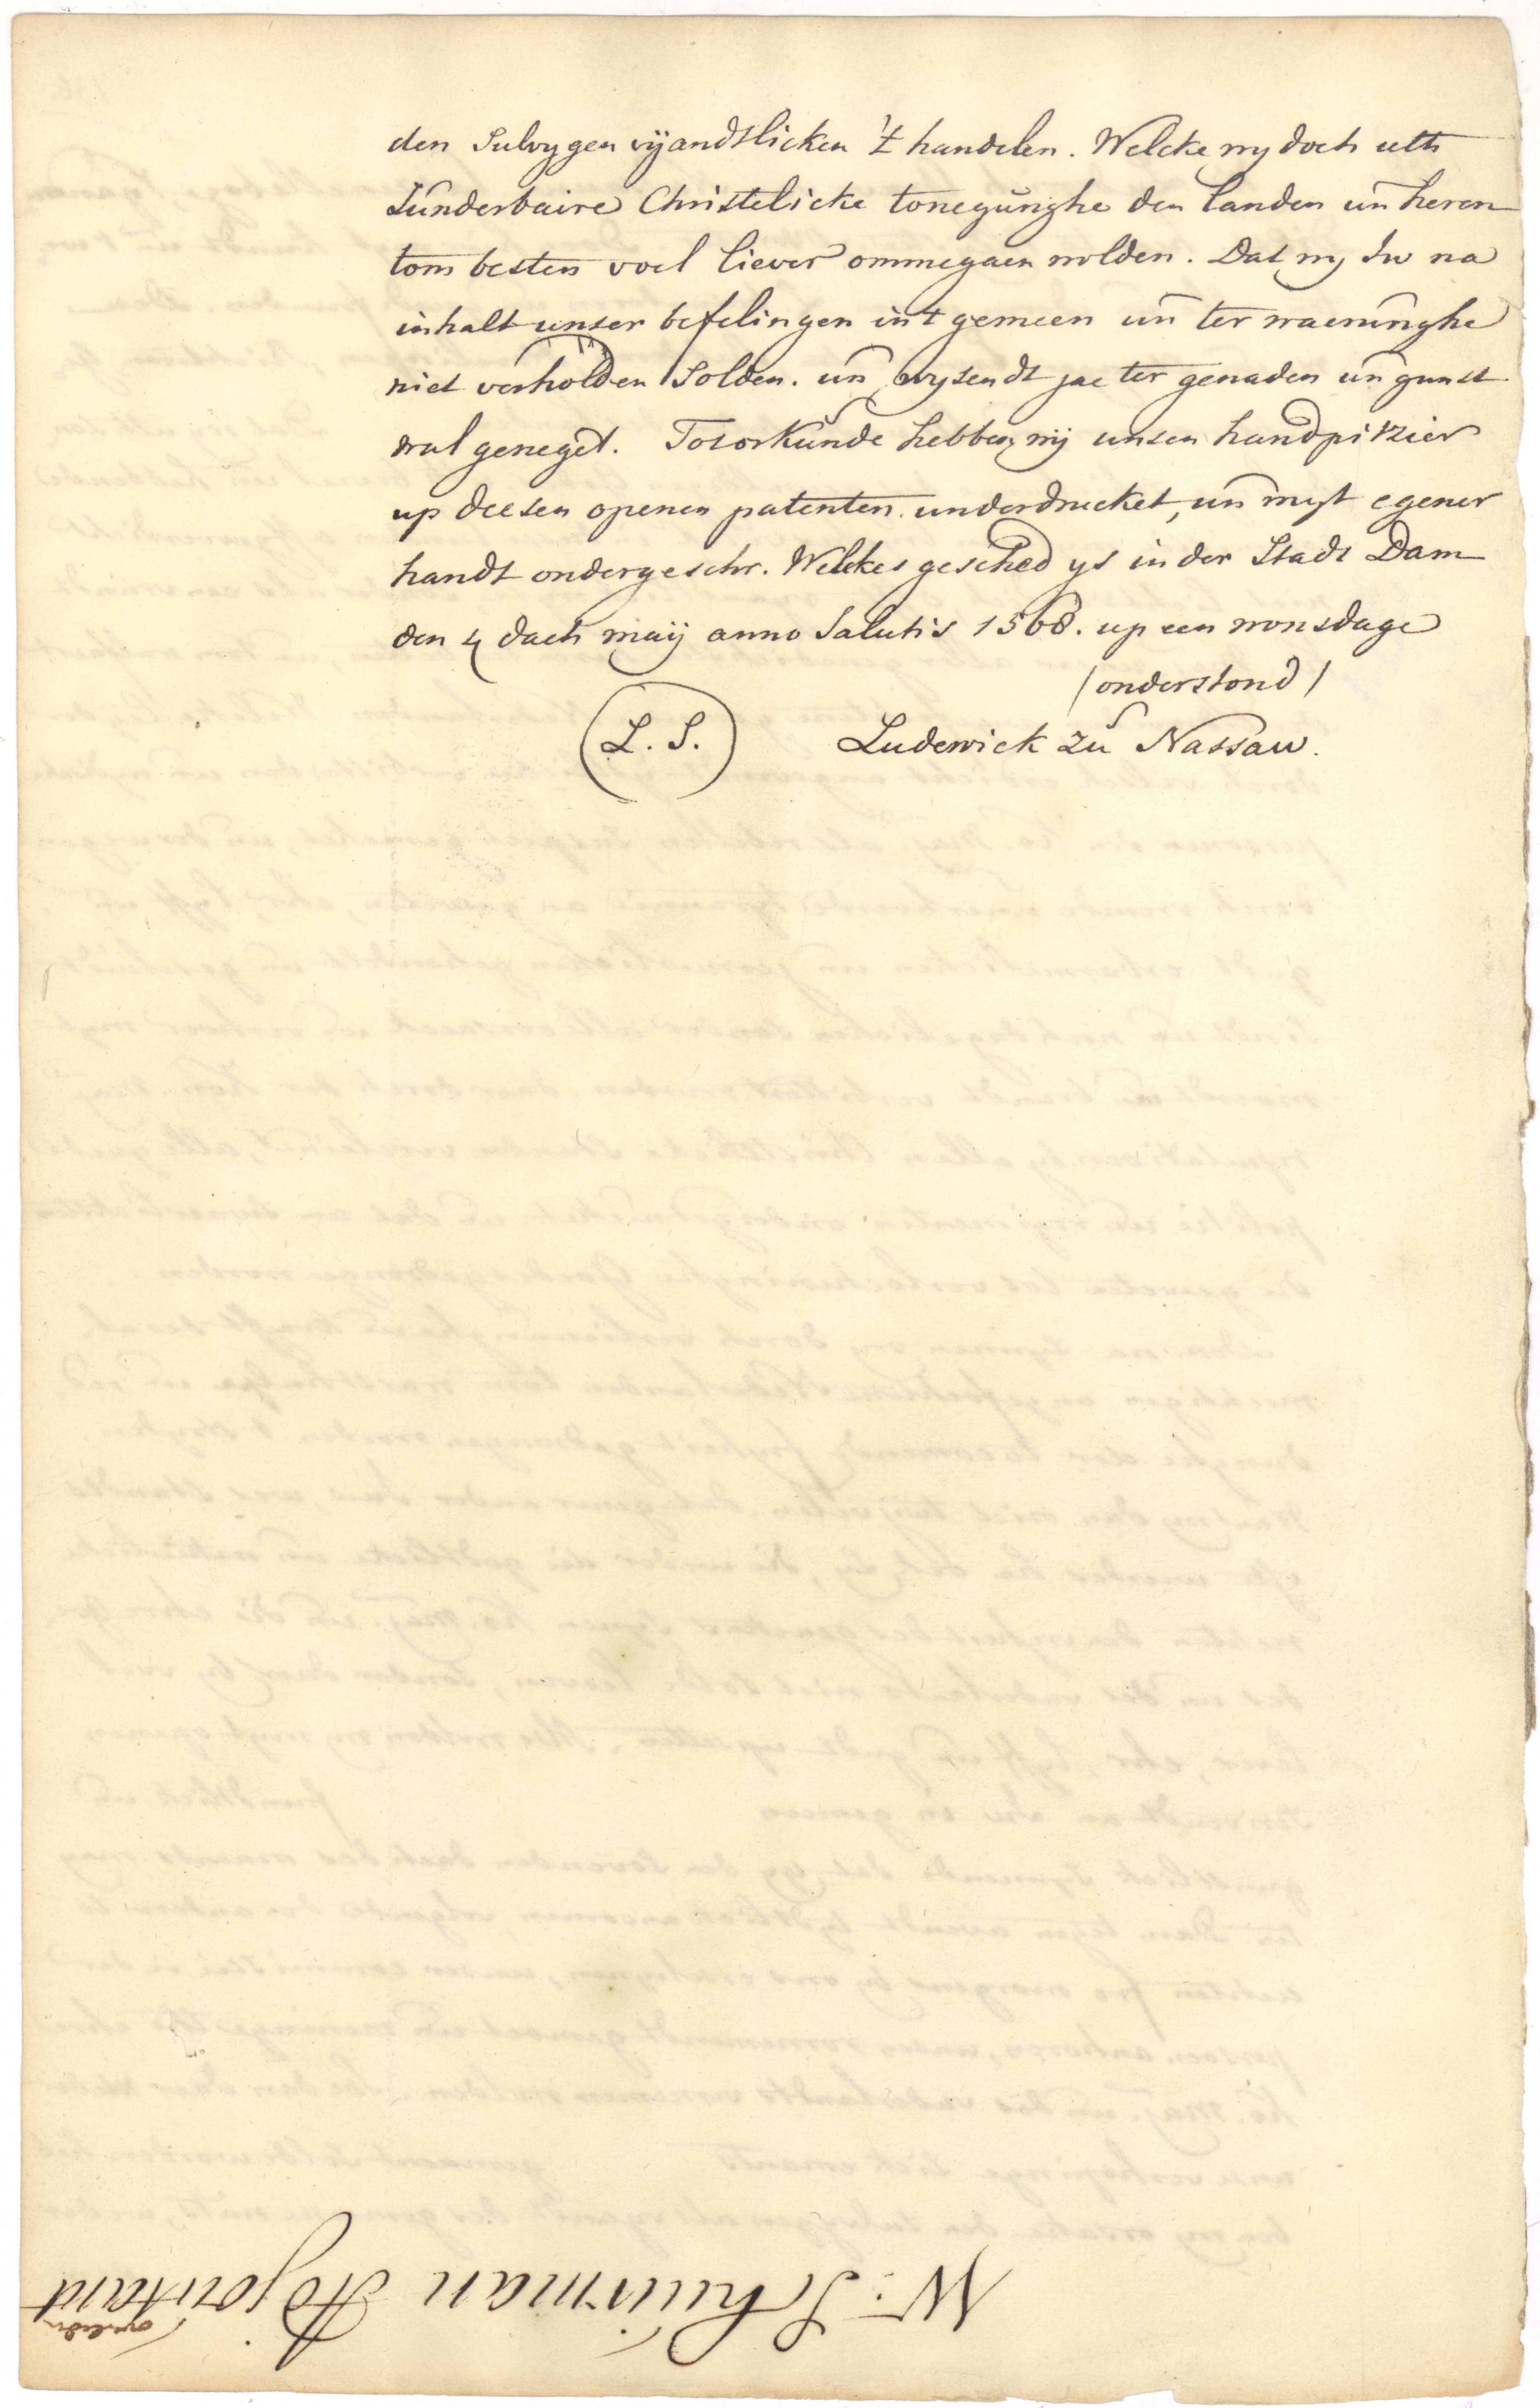 den Sulvygen vÿandtlicken 't handelen. Welcke wy doch uth
Sunderbaire Christelicke tonegŭnghe den landen un̄ heren
tom besten voel liever ommegaen wolden. Dat wy Iw na
inhalt unser befelingen int gemeen un̄ ter waerŭnghe
niet verholden Solden. un̄ wysendt jae ter genaden un̄ gunst
wal geneget. Totorkŭnde hebben wij unsen handpitzier
up deesen openen patenten underdrucket, un̄ myt egener
handt ondergeschr. Welckes gesched ys in der Stadt Dam
den 4 dach maÿ anno Salutis 1568. up een wonsdage
(onderstond)
(L. S.) Ludewick zŭ Nassau.
Wm. Schuirman Adjoinktand